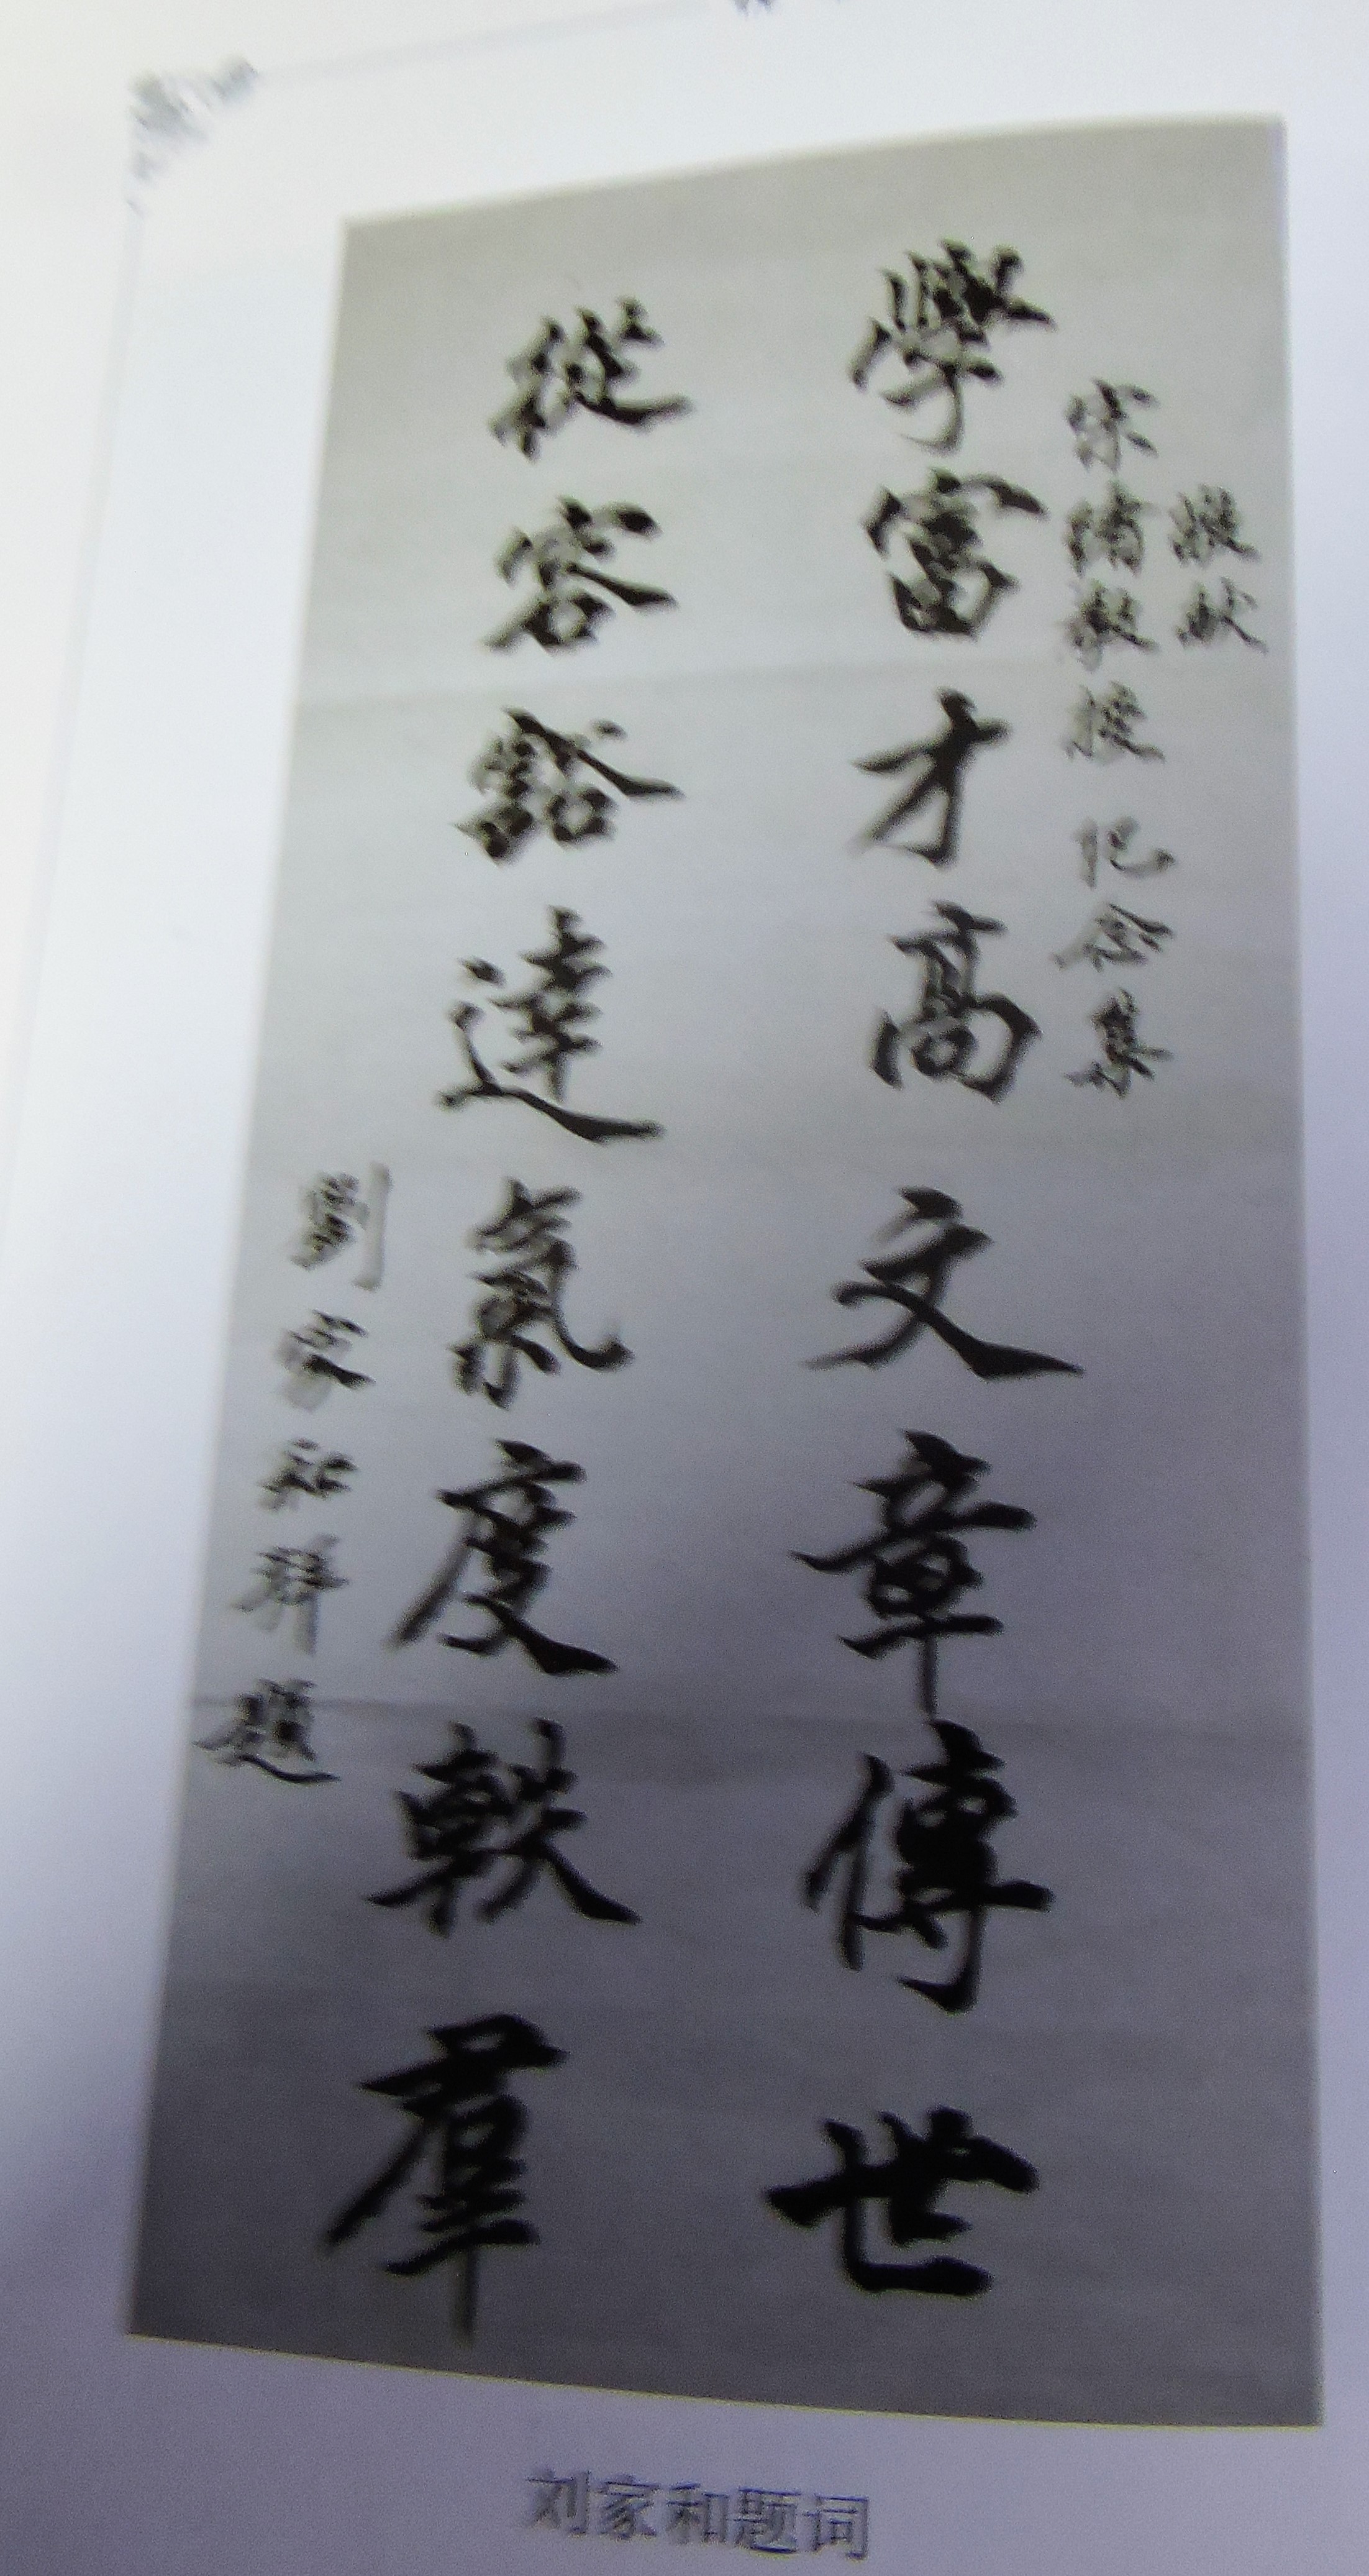 宋教授 纪念集
學富才高文章傳世
從容豁達氣度軼羣
劉家和拜題
刘家和题词